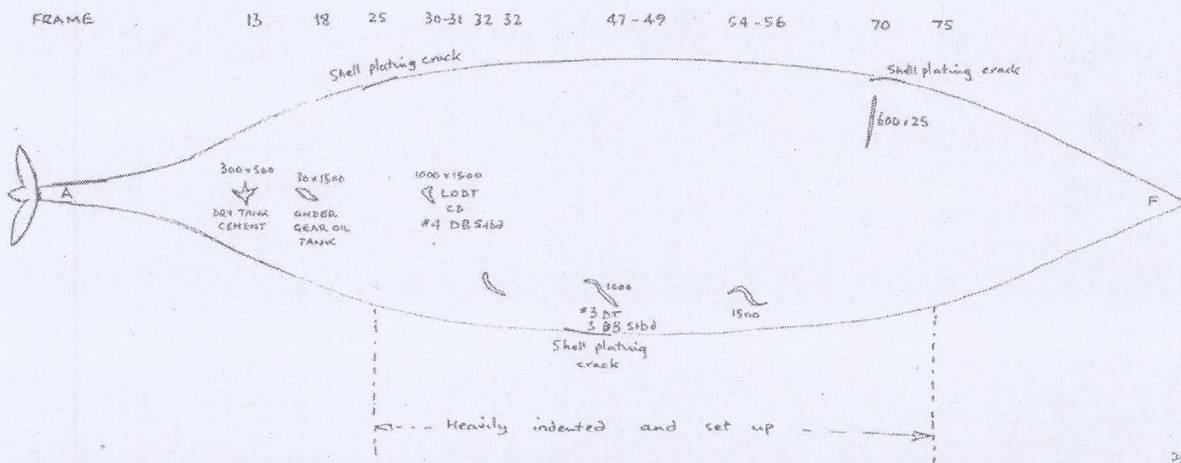 FRAME 13 18 25 30-31 32 32 47-49 54-56 70 75
Shell plating crack
Shell plating crack
600 x 25
A
F
300 x 500
DRY TANK
CEMENT
30 x 1500
UNDER
GEAR OIL
TANK
1000 x 1500
LODT
CD
#4 DB Stbd
1000
#3 DT
3 DB Stbd
1500
Shell plating
crack
Heavily indented and set up